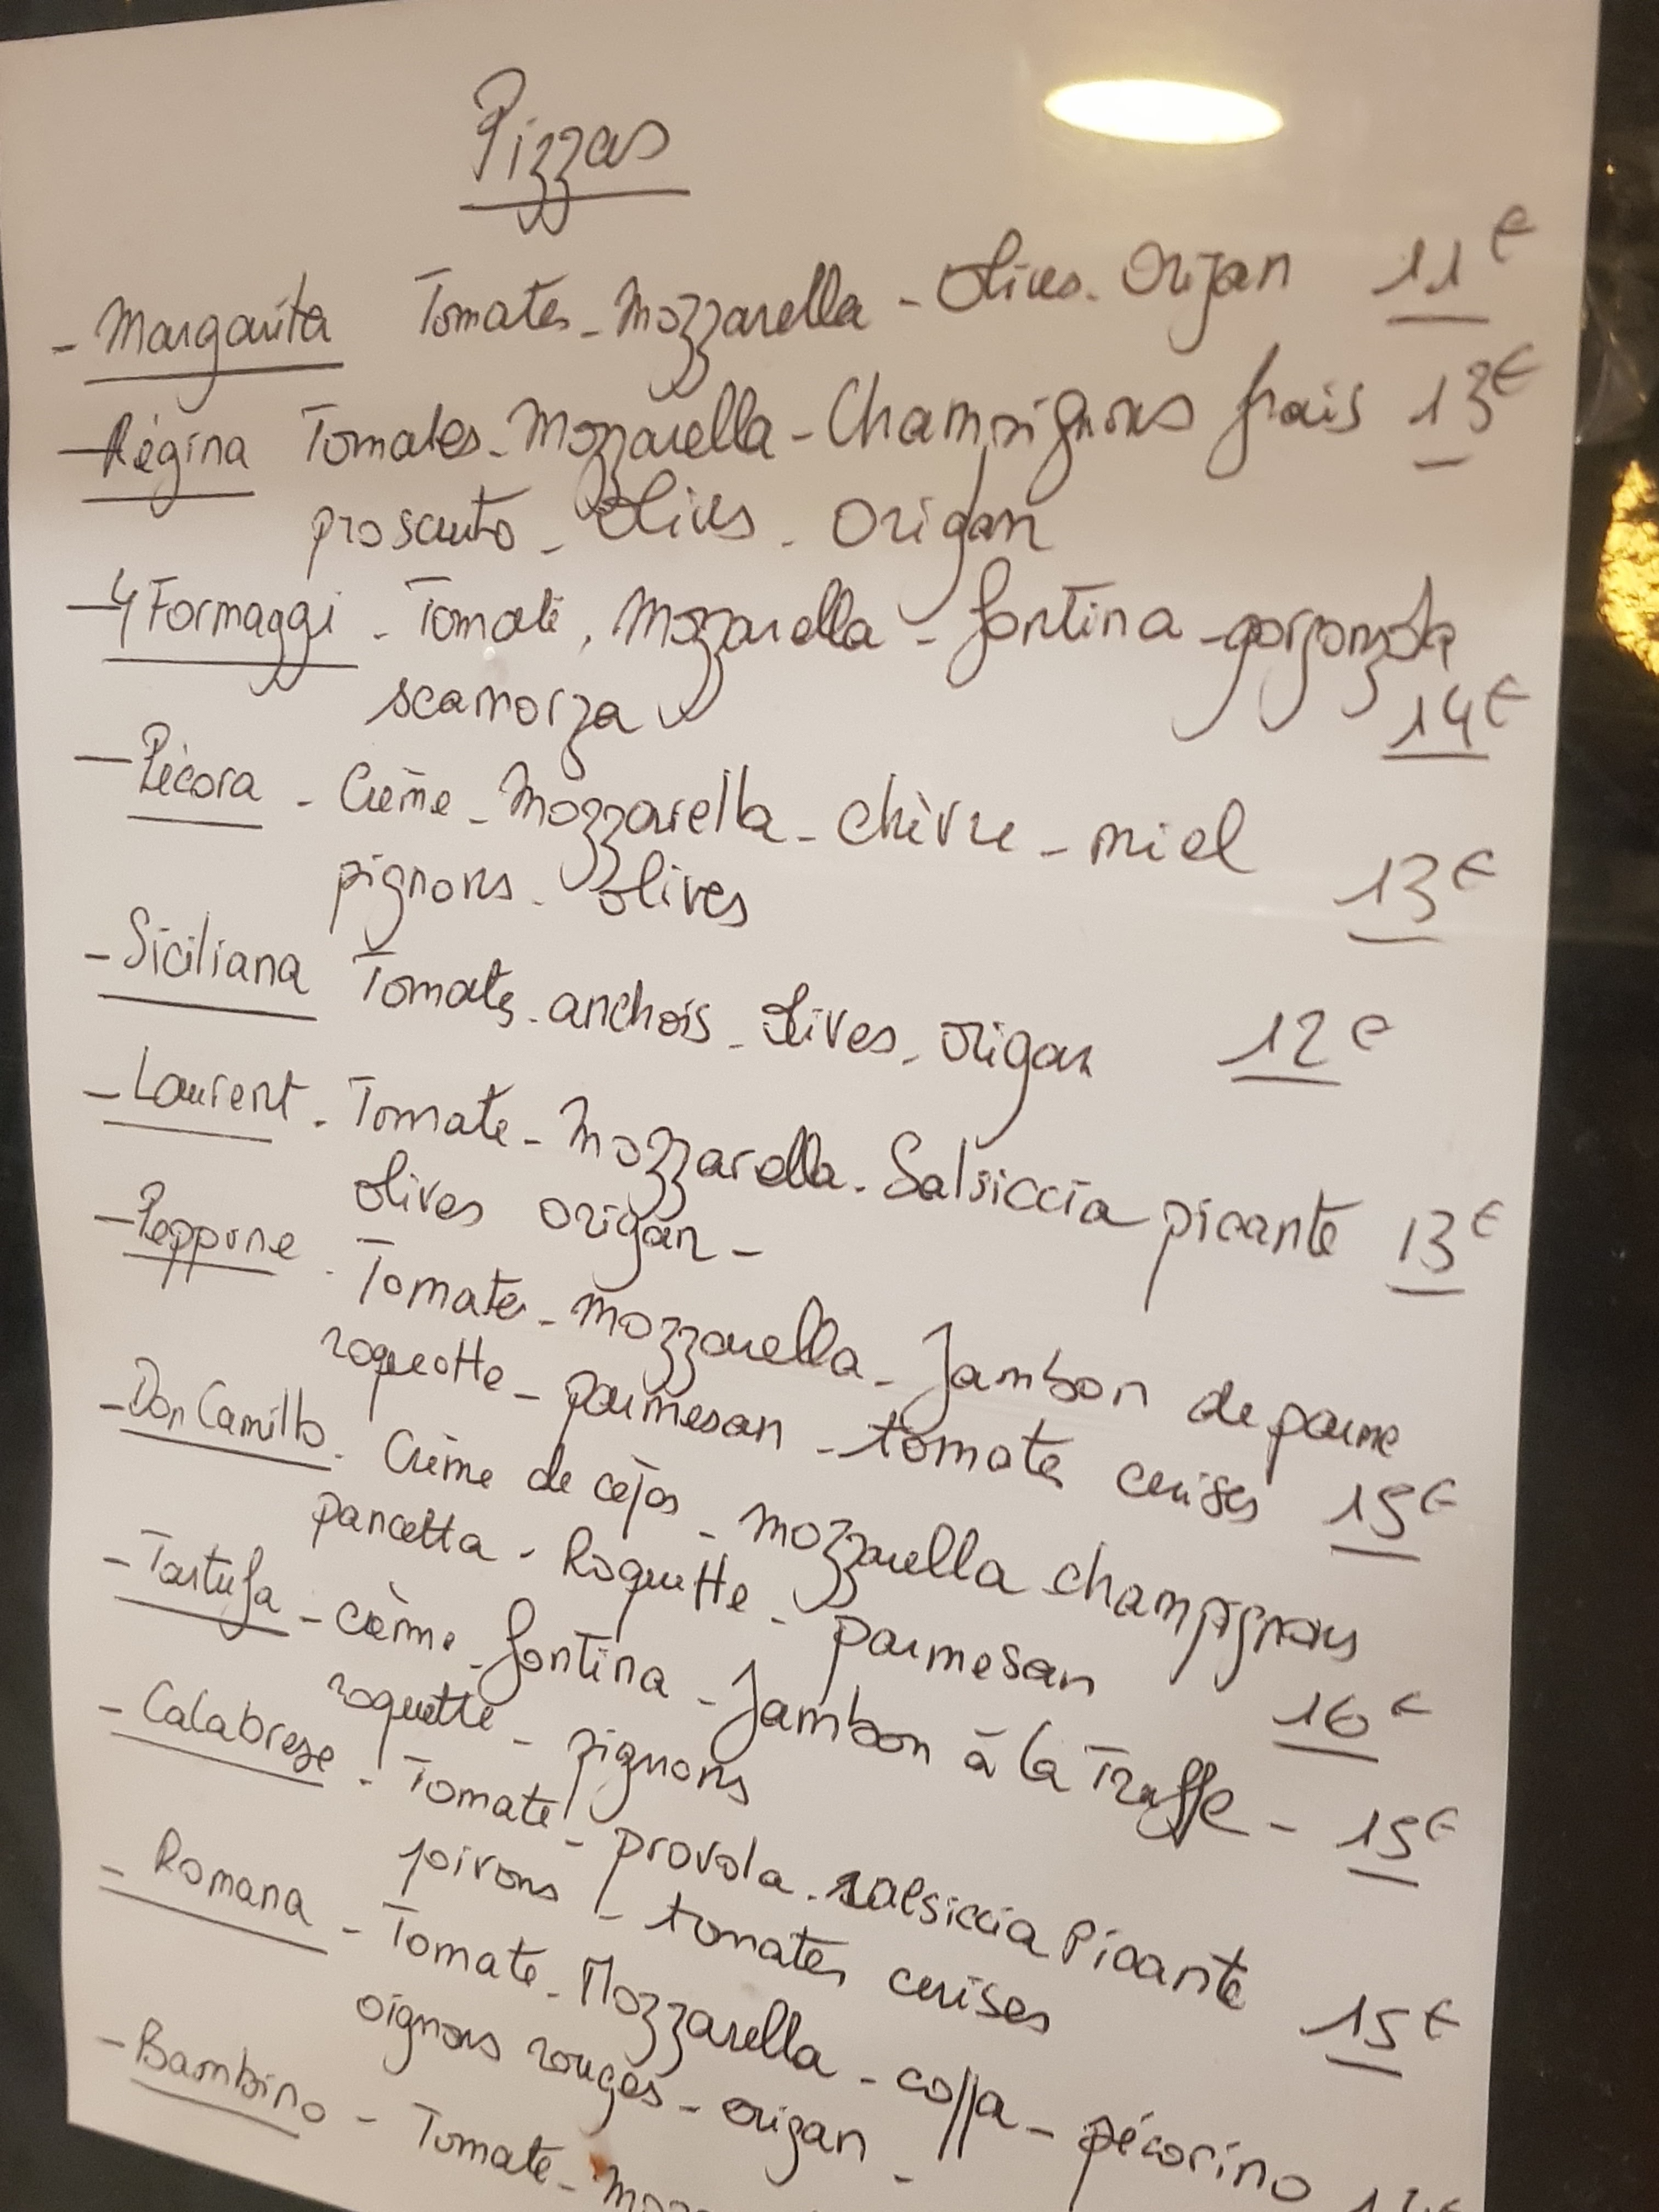 Pizzas
- Margarita Tomates - Mozzarella - Olives - Origan 11€
- Régina Tomates - Mozzarella - Champignons frais 13€
proscuito - Olives - Origan
- 4 Formaggi - Tomate, Mozzarella - fontina - gorgonzola
scamorza 14€
- Pécora - Crème - Mozzarella - chèvre - miel
pignons - Olives 13€
- Siciliana Tomates - anchois - Olives - Origan 12€
- Laurent - Tomate - Mozzarella - Salsiccia picante 13€
olives origan -
- Peppone - Tomates - Mozzarella - Jambon de parme
roquette - parmesan - tomates cerises 15€
- Don Camillo - Crème de cèpes - mozzarella champignons
pancetta - Roquette - parmesan 16€
- Tartufa - crème - fontina - Jambon à la Truffe - 15€
roquette - pignons
- Calabrese - Tomate - provola - salsiccia Picante
poivrons - tomates cerises 15€
- Romana - Tomate - Mozzarella - coppa - pécorino
oignons rouges - origan -
- Bambino - Tomate -